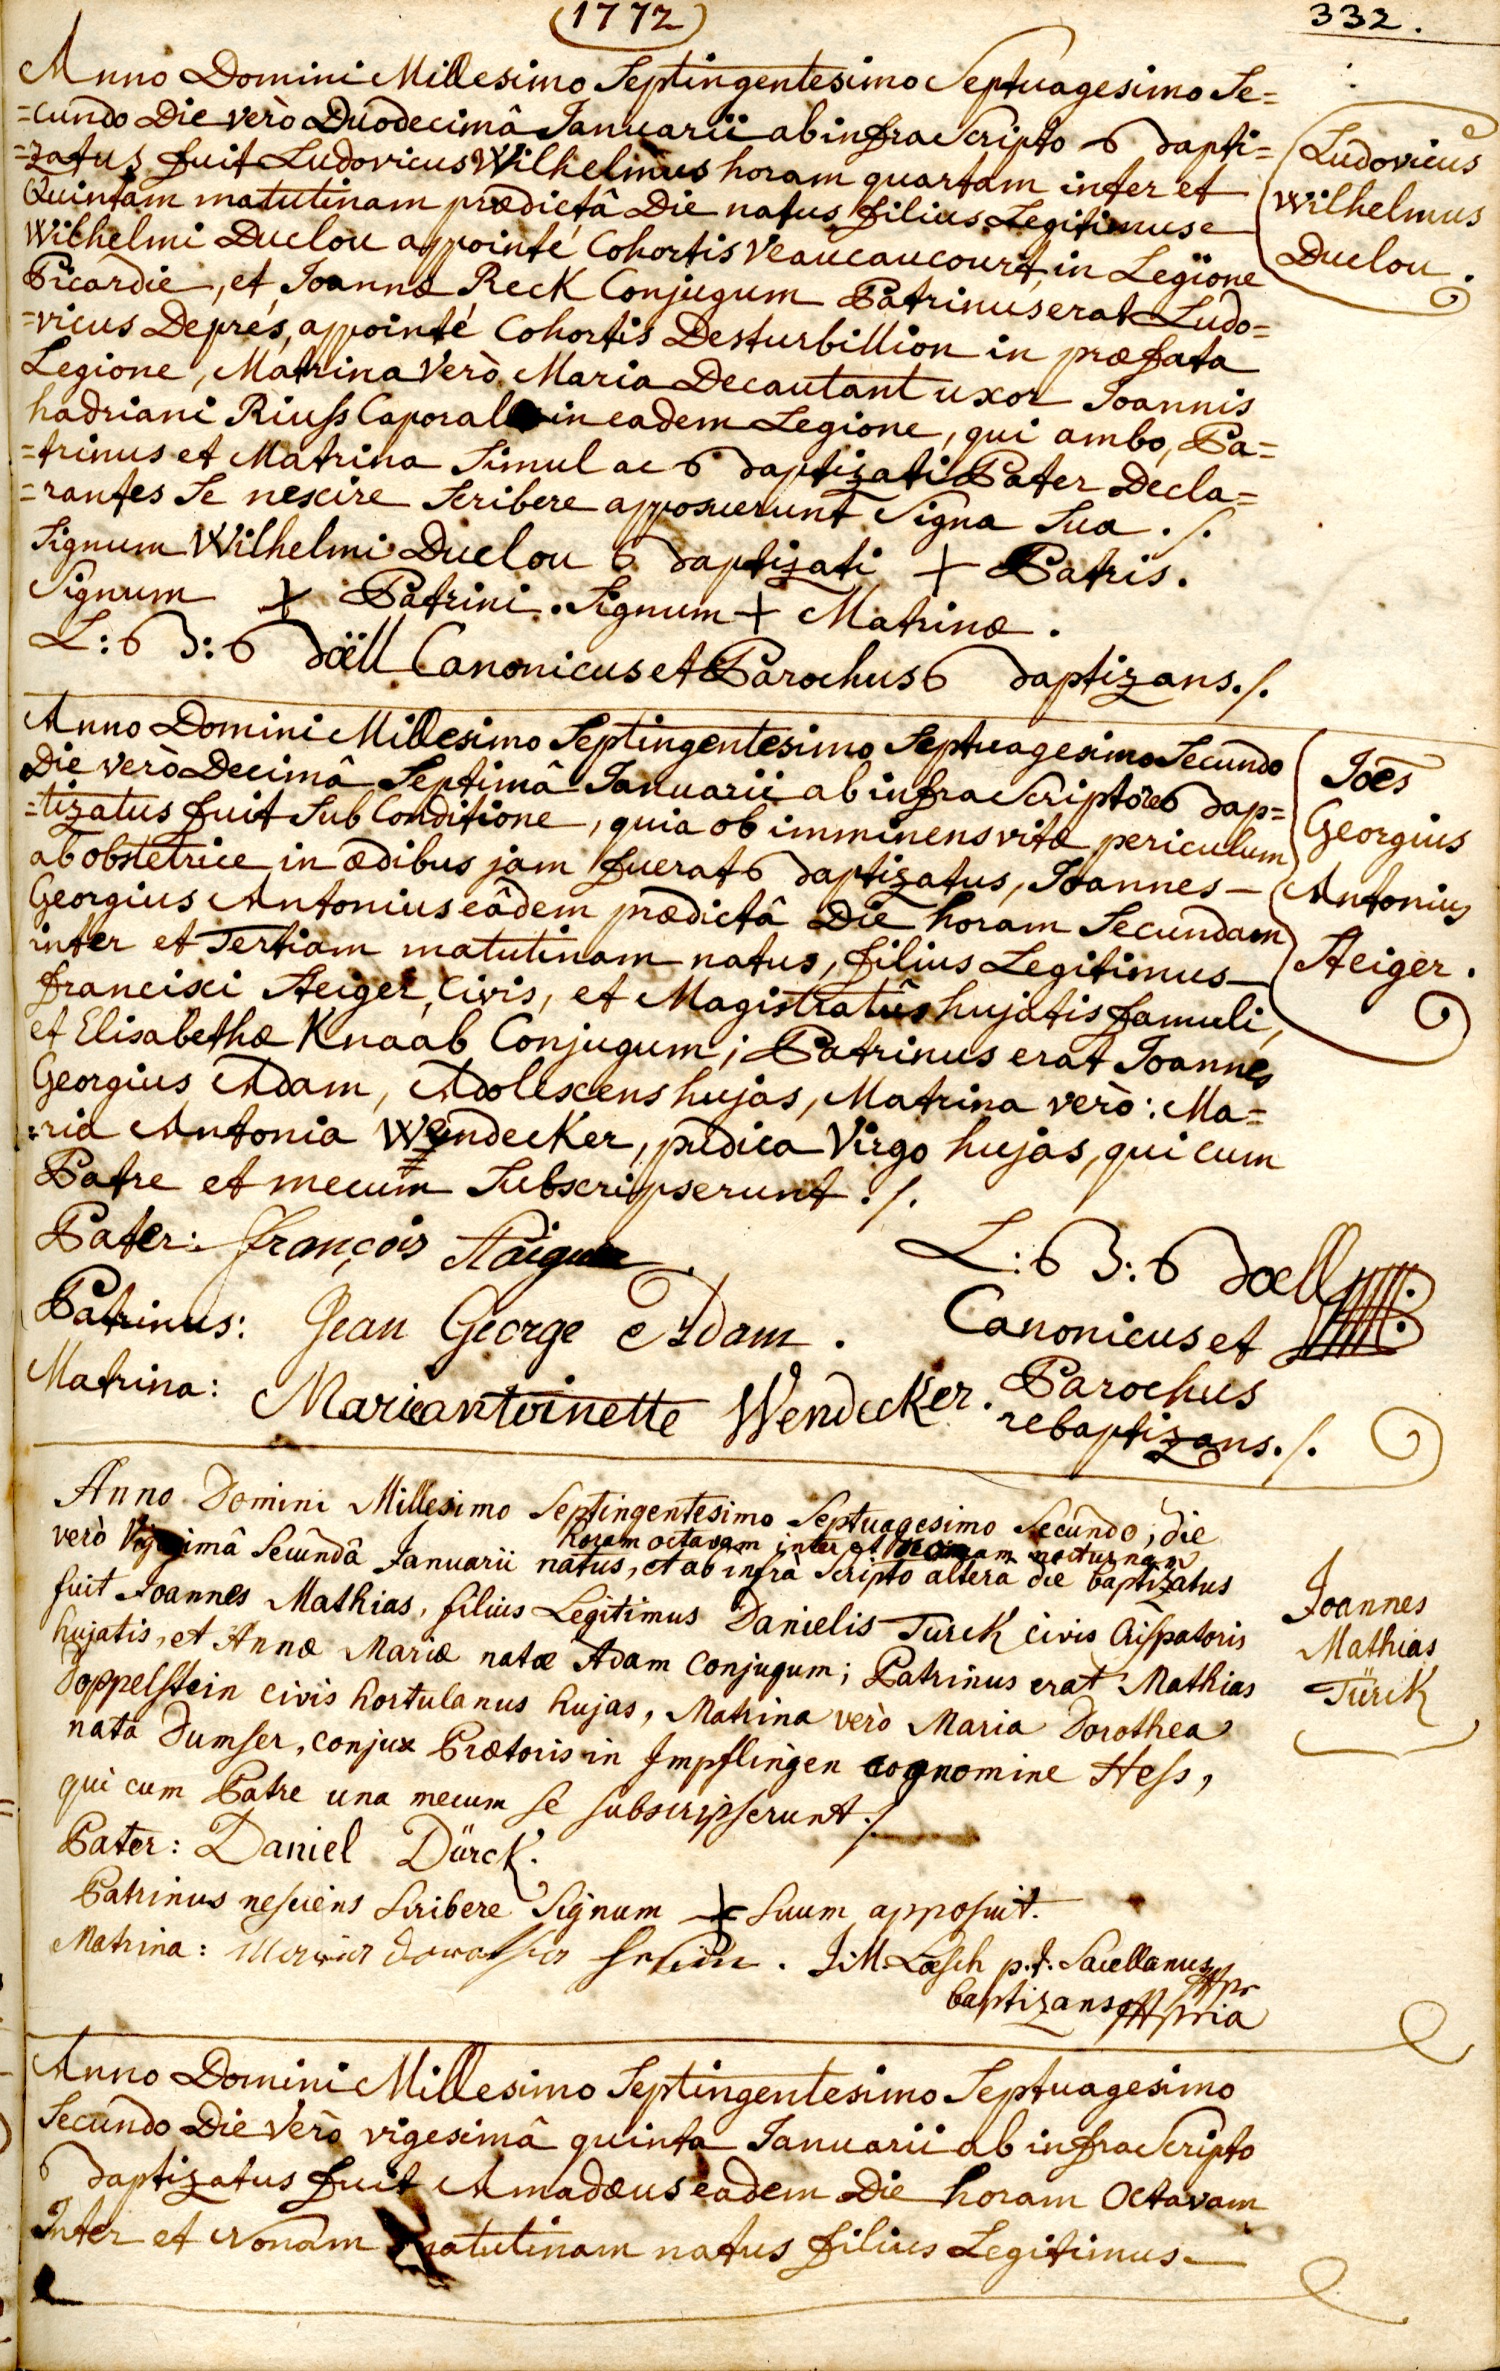 (1772)
332.
Anno Domini Millesimo Septingentesimo Septuagesimo Se=
=cundo Die verò Duodecimâ Januarii ab infra Scripto Bapti=
=zatus fuit Ludovicus Wilhelmus horam quartam inter et
Quintam matutinam prædictâ Die natus filius Legitimus
Wilhelmi Duclou appointé Cohortis Veaucaucourt, in Legione
Picardie, et Joannæ Reck Conjugum Patrinus erat Ludo=
=vicus Deprés, appointé Cohortis Desturbillion in præfata
Legione, Matrina Verò Maria Decautant uxor Joannis
hadriani Riuss Caporal in eadem Legione, qui ambo, Pa=
=trinus et Matrina Simul ac Baptizati Pater Decla=
=rantes Se nescire Scribere apposuerunt Signa Sua ./.
Signum Wilhelmi Duclou Baptizati + Patris.
Signum + Patrini. Signum + Matrinæ.
L: B: Boëll Canonicus et Parochus Baptizans./.
Ludovicus
Wilhelmus
Duclou.
Anno Domini Millesimo Septingentesimo Septuagesimo Secundo
Die verò Decimâ Septimâ Januarii ab infra Scripto reBap=
=tizatus fuit Sub Conditione, quia ob imminens vitæ periculum
ab obstetrice in ædibus jam fuerat Baptizatus, Joannes
Georgius Antonius eâdem prædictâ Die horam Secundam
inter et Tertiam matutinam natus, filius Legitimus
francisci Steiger, Civis, et Magistratûs hujatis famuli,
et Elisabethæ Knaab Conjugum; Patrinus erat Joannes
Georgius Adam, Adolescens hujas, Matrina verò: Ma=
=ria Antonia Wendecker, pudica Virgo hujas, qui cum
Patre et mecum Subscripserunt ./.
Joēs
Georgius
Antonius
Steiger.
Pater: françois Staiguer
Patrinus: Jean George Adam.
Matrina: Marieantoinette Wendecker.
L: B: Boell
Canonicus et
Parochus
rebaptizans./.
Anno Domini Millesimo Septingentesimo Septuagesimo Secundo, die
horam octavam inter et nonam nocturnam
verò Vigesimâ Secundâ Januarii natus, et ab infrà Scripto altera die baptizatus
fuit Joannes Mathias, filius Legitimus Danielis Türck civis Crispatoris
hujatis, et Annæ Mariæ natæ Adam Conjugum; Patrinus erat Mathias
Doppelstein civis hortulanus hujas, Matrina verò Maria Dorothea
nata Dumser, conjux Prætoris in Impflingen cognomine Hess,
qui cum Patre una mecum se subscripserunt ./.
Joannes
Mathias
Türck
Pater: Daniel Dürck.
Patrinus nesciens scribere Signum + suum apposuit.
Matrina: Maria Dorothea Hesin. J:M: Loesch p.t. Sacellanus
baptizans mppria
Anno Domini Millesimo Septingentesimo Septuagesimo
Secundo Die Verò vigesimâ quinta Januarii ab infra Scripto
Baptizatus fuit Amadæus eadem Die horam Octavam
Inter et Nonam matutinam natus filius Legitimus